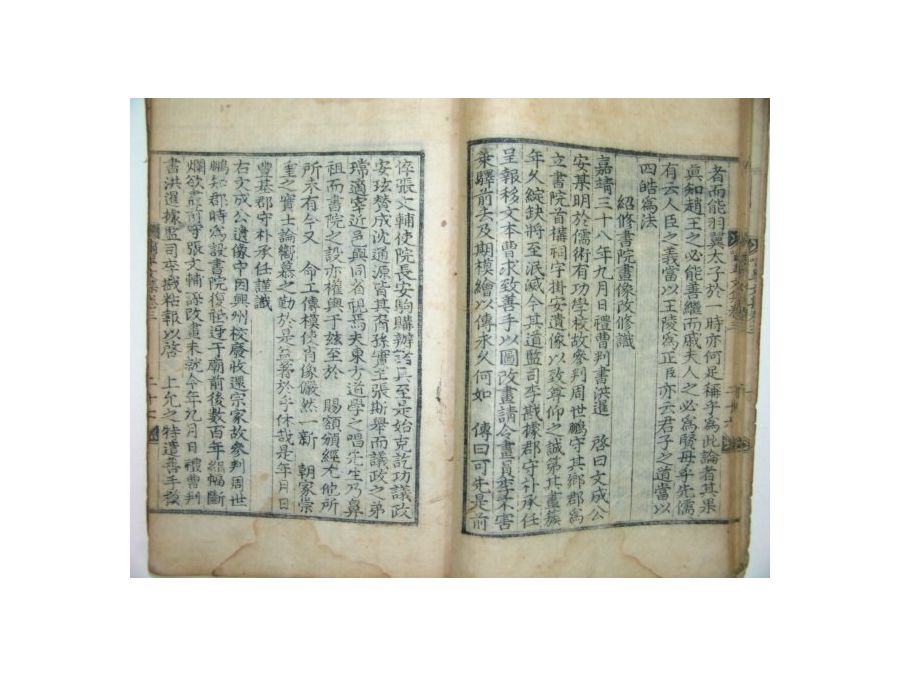 者而能羽翼太子於一時亦何足稱乎為此論者其果
真知趙王之必能善繼而戚夫人之必為賢母乎先儒
有云人臣之義當以王陵為正臣亦云君子之道當以
四皓為法
紹修書院畫像改修識
嘉靖三十八年九月日禮曹判書洪暹 啓曰文成公
安某明於儒術有功學校故參判周世鵬守其鄉郡為
立書院首構祠宇掛安遺像以致尊仰之誠第其畫簇
年久綻缺將至泯滅今其道監司李戡據郡守朴承任
呈報移文本曹求致善手以圖改畫請令畫員李不害
乘驛前去及期模繪以傳永久何如 傳曰可先是前
倅張文輔使院長安駒購辦 具至是始克訖功議政
安玹賛成沈通源皆其裔孫實主張斯舉而議政之弟
瑋適宰近邑與同省 焉夫東方道學之唱先生乃鼻
祖而書院之設亦權輿于玆至於 賜額頒經尤他所
所未有今又 命工傳模使肖像儼然一新 朝家崇
重之 士論嚮慕之勤於是益著於乎休哉是年月日
豊基郡守朴承任謹識
右文成公遺像中因興州校廢收還宗家故參判周世
鵬知郡時為設書院復 于廟前後數百年絹幅斷
爛欲盡前守張文輔謀改畫未就今年九月日禮曹判
書洪暹據監司李戡粘報以啓 上允之特遣善手